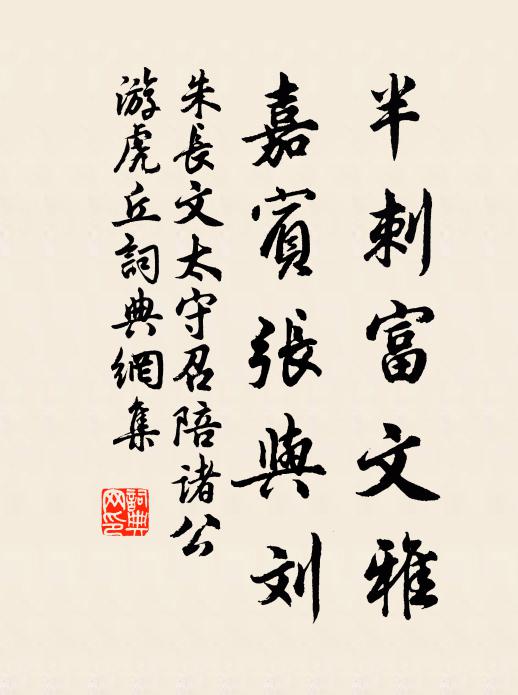 半刺富文雅
嘉賓張與刘
朱長文太守召陪诸公
游虎丘詞典網集
詞典
网印